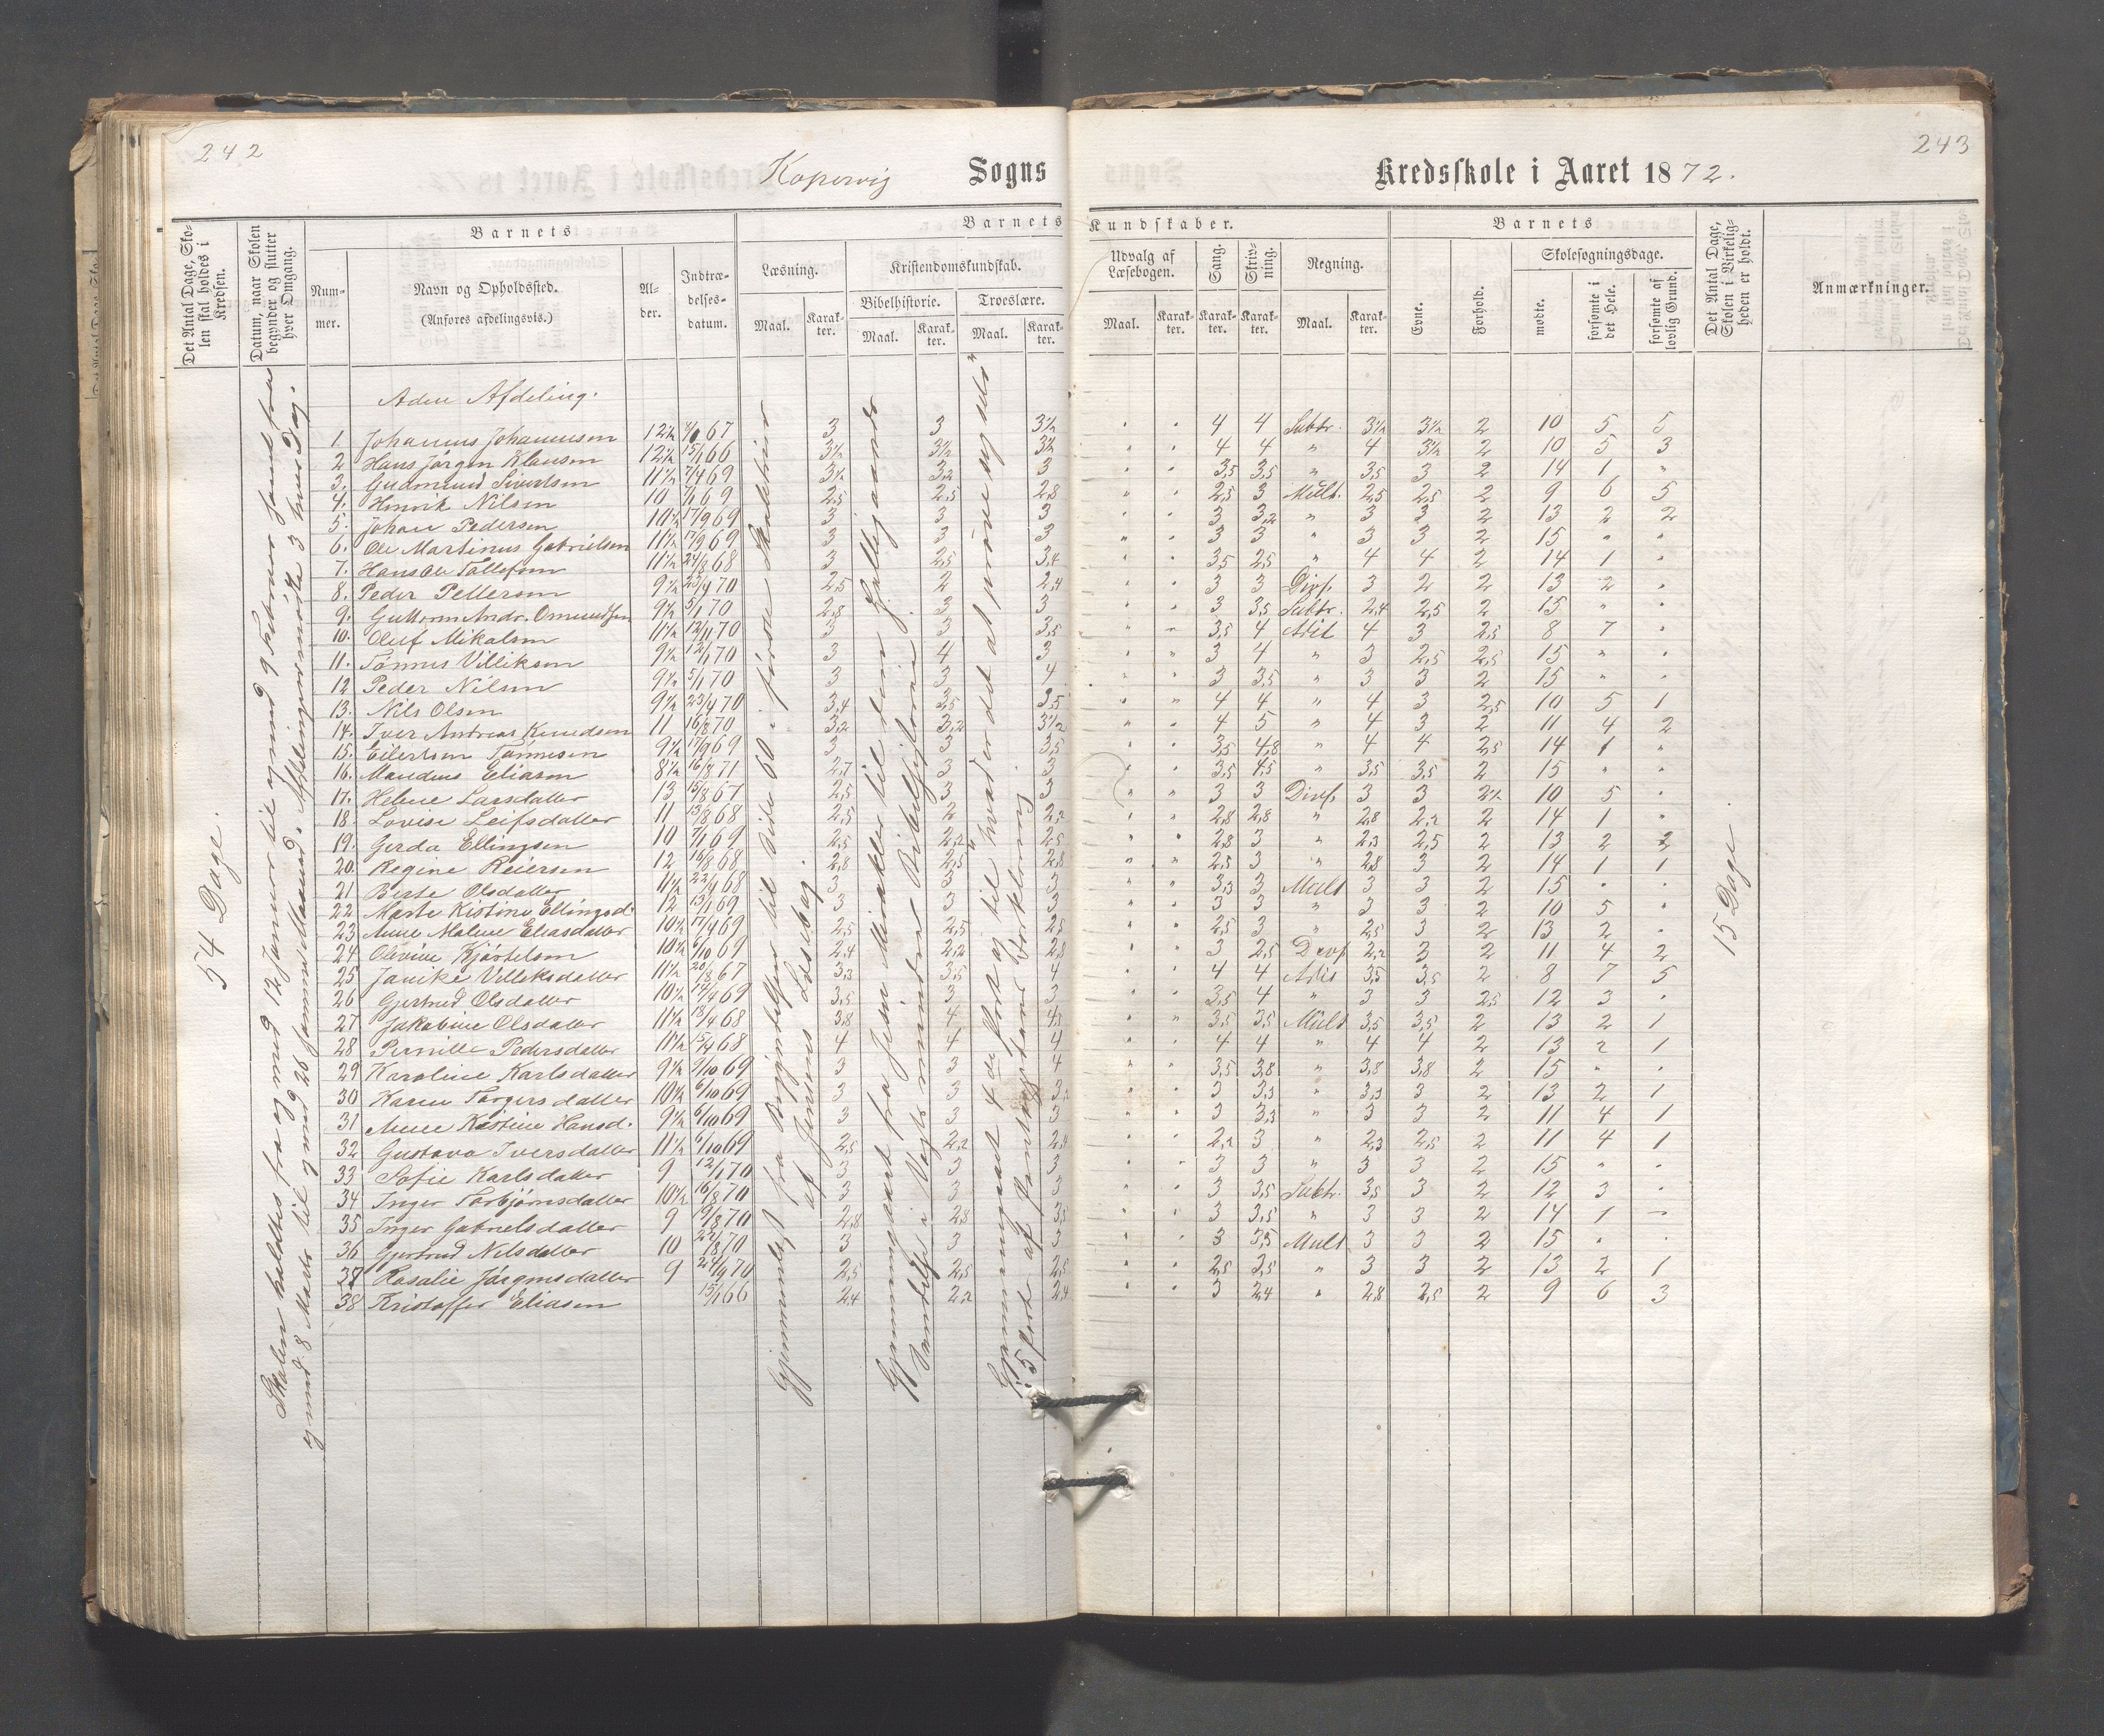 242
Kopervig Sogns
Det Antal Dage, Skolen skal holdes i Kredsen.
Datum, naar Skolen begynder og slutter hver Omgang.
Barnets
Nummer.
Navn og Opholdssted.
(Anføres afdelingsvis.)
Alder.
Indtrædelsesdatum.
Barnets
Læsning.
Maal.
Karakter.
Kristendomskundskab.
Bibelhistorie.
Maal.
Karakter.
Troeslære.
Maal.
Karakter.
54 Dage.
Skolen holdtes fra og med 12 Januar til og med 9 Februar samt fra
og med 26 samme Maaned til og med 8 Marts. Afdelingen mødte 3 hver Dag.
Gjennemlæst fra Begyndelsen til Side 60 i første Skoletrin
af Jensens Læsebog.
Gjennemgaaet fra Jesu Mirakler til den
i Vogts mindre Bibelhistorie.
Gjennemgaaet 4de Part og til "hvad er det at prøve sig selv"
i 5 Part af Pontoppidans Forklaring
Aden Afdeling.
1. Johannes Johannesen 12½ 67 3 3 3½
2 Hans Jørgen Klausen 12½ 15/1 66 3½ 3½ 3½
3. Gudmund Sivertsen 11½ 7/4 69 3½ 3,2 3
4. Henrik Nilsen 10 7/1 69 2,5 2,5 2,8
5. Johan Pedersen 10½ 17/9 69 3 3 3
6. Ole Martinus Gabrielsen 11½ 17/9 69 3 3 3
7. Hans Ole Tollefsen 11½ 24/8 68 3 2,5 3,4
8. Peder Pettersen 9½ 23/4 70 2,5 2 2,4
9. Guttorm Andr. Omundsen 9½ 5/1 70 2,8 3 3
10. Oluf Mikalsen 11½ 12/11 70 3 3 3,5
11. Tønnes Villiksen 9½ 12/1 70 3 4 3
12 Peder Nilsen 9½ 5/1 70 3 3 4
13. Nils Olsen 9½ 23/4 70 3,4 3,5 3,5
14. Iver Andreas Knudsen 11 16/8 70 3,2 3,2 3½
15. Eilertsen Tønnesen 9½ 17/9 69 3 3 3,5
16. Mandius Eliasen 8½ 16/8 71 2,7 3 3
17. Helene Larsdatter 13 15/8 67 2,5 3 3
18. Lovise Leifsdatter 11 13/8 68 2,5 2 2,2
19. Gerda Ellingsen 10 7/1 69 2,5 2,2 2,5
20. Regine Reiersen 12 16/8 68 2,8 2,5 2,8
21 Berte Olsdatter 11½ 22/4 68 3 3 3
22 Marte Kistine Ellingsd. 12 13/1 69 3 3 3
23 Anne Malene Eliasdatter 10½ 17/4 69 2,5 2,5 2,5
24 Olevine Kjørtelsen 10½ 6/10 69 2,4 2,2 2,8
25 Janike Villiksdatter 11½ 20/8 67 3,3 3,5 4
26 Gjertrud Olsdatter 10½ 14/4 69 3,5 3 3
27 Jakobine Olsdatter 11½ 18/4 68 3,8 4 4,
28 Pernille Pedersdatter 11½ 15/4 68 4 4 4
29 Karoline Karlsdatter 9½ 9/10 69 3 3 4
30 Karen Torgersdatter 10½ 6/10 69 3 3 3,
31 Anne Kistine Hansd. 9½ 6/10 69 3 3 3
32 Gustava Iversdatter 11½ 6/10 69 2,5 2,2 2,4
33 Sofie Karlsdatter 9 12/1 70 3 3 3
34 Inger Torbjørnsdatter 10½ 16/8 70 3 3 3
35 Inger Gabrielsdatter 9 9/8 70 2,8 2,8 3,5
36 Gjertrud Nilsdatter 10 22/8 70 3 3 3
37 Rosalie Jørgensdatter 9 21/4 70 2,5 2,5 2,5
38 Kristoffer Eliasen 15/1 66 2,4 2,2 2,4
243
Kredsskole i Aaret 1872.
Kundskaber.
Udvalg af Læsebogen.
Maal.
Karakter.
Sang.
Karakter.
Skrivning.
Karakter.
Regning.
Maal.
Karakter.
Barnets
Evne.
Forhold.
Skolesøgningsdage.
mødte.
forsømte i det Hele.
forsømte af lovlig Grund.
Det Antal Dage, Skolen i Virkeligheden er holdt.
Anmærkninger.
" " 4 4 Subtr. 3½ 3½ 2 10 5 5
" " 4 4 " 4 3½ 2 10 5 3
" " 3,5 3,5 " 3,5 3 2 14 1 "
" " 2,5 3 Mult. 2,5 2,5 2 9 6 5
" " 3 3,2 " 3 3 2 13 2 2
" " 3 3 " 3 3 2 15 " "
" " 3,5 2,5 " 4 4 2 14 1 "
" " 3 3 Divs. 3 2 2 13 2 "
" " 3 3,5 Subtr. 2,4 2,5 2 15 " "
" " 3,5 4 Adit 4 3 2,5 8 7 "
" " 3 4 " 3 2,5 2,5 15 " "
" " 3 3,5 " 3 3 2 15 " "
" " 4 4 " 4 3 2,5 10 5 1
" " 4 5 " 4 3 2 11 4 2
" " 3,5 4,8 " 4 4 2,5 14 1 "
" " 3,5 4,5 " 3,5 3,5 2 15 " "
" " 3 3 Divs. 3 3 2½ 10 5 "
" " 2,8 2,8 " 2,8 2,2 2 14 1 "
" " 2,8 3 " 2,3 2,5 2 13 2 2
" " 2,5 3 " 2,8 3 2 14 1 1
" " 3,3 3 Mult 3 3 2 15 " "
" " 3 3 " 3 3 2 10 5 "
" " 2,5 3 " 2,5 3 2 13 2 "
" " 3 2,5 Divs 2,2 3 2 11 4 2
" " 4 4 Adis 3,5 3,5 2 8 7 5
" " 3,5 4 " 3 3 2,5 12 3 "
" " 3,5 3,5 Mult 3,5 3,5 2 13 2 1
" " 4 4 " 4 4 2 13 2 1
" " 3,5 3,8 " 3,8 3,8 2 15 " "
" " 3 3,3 " 3,3 3 2 13 2 1
" " 3 3,3 " 3 3 2 11 4 1
" " 2,2 3 " 2,3 2,5 2 11 4 1
" " 3 3 " 3 3 2 15 " "
" " 3 3,5 Subtr. 3,5 3 2 12 3 "
" " 3 3,5 " 3 3 2 14 1 "
" " 3 3,5 Mult 3 3 2 15 " "
" " 2,5 2,5 " 3 3 2 13 2 1
" " 3 2,4 " 2,8 2,5 2 9 6 3
15 Dage.